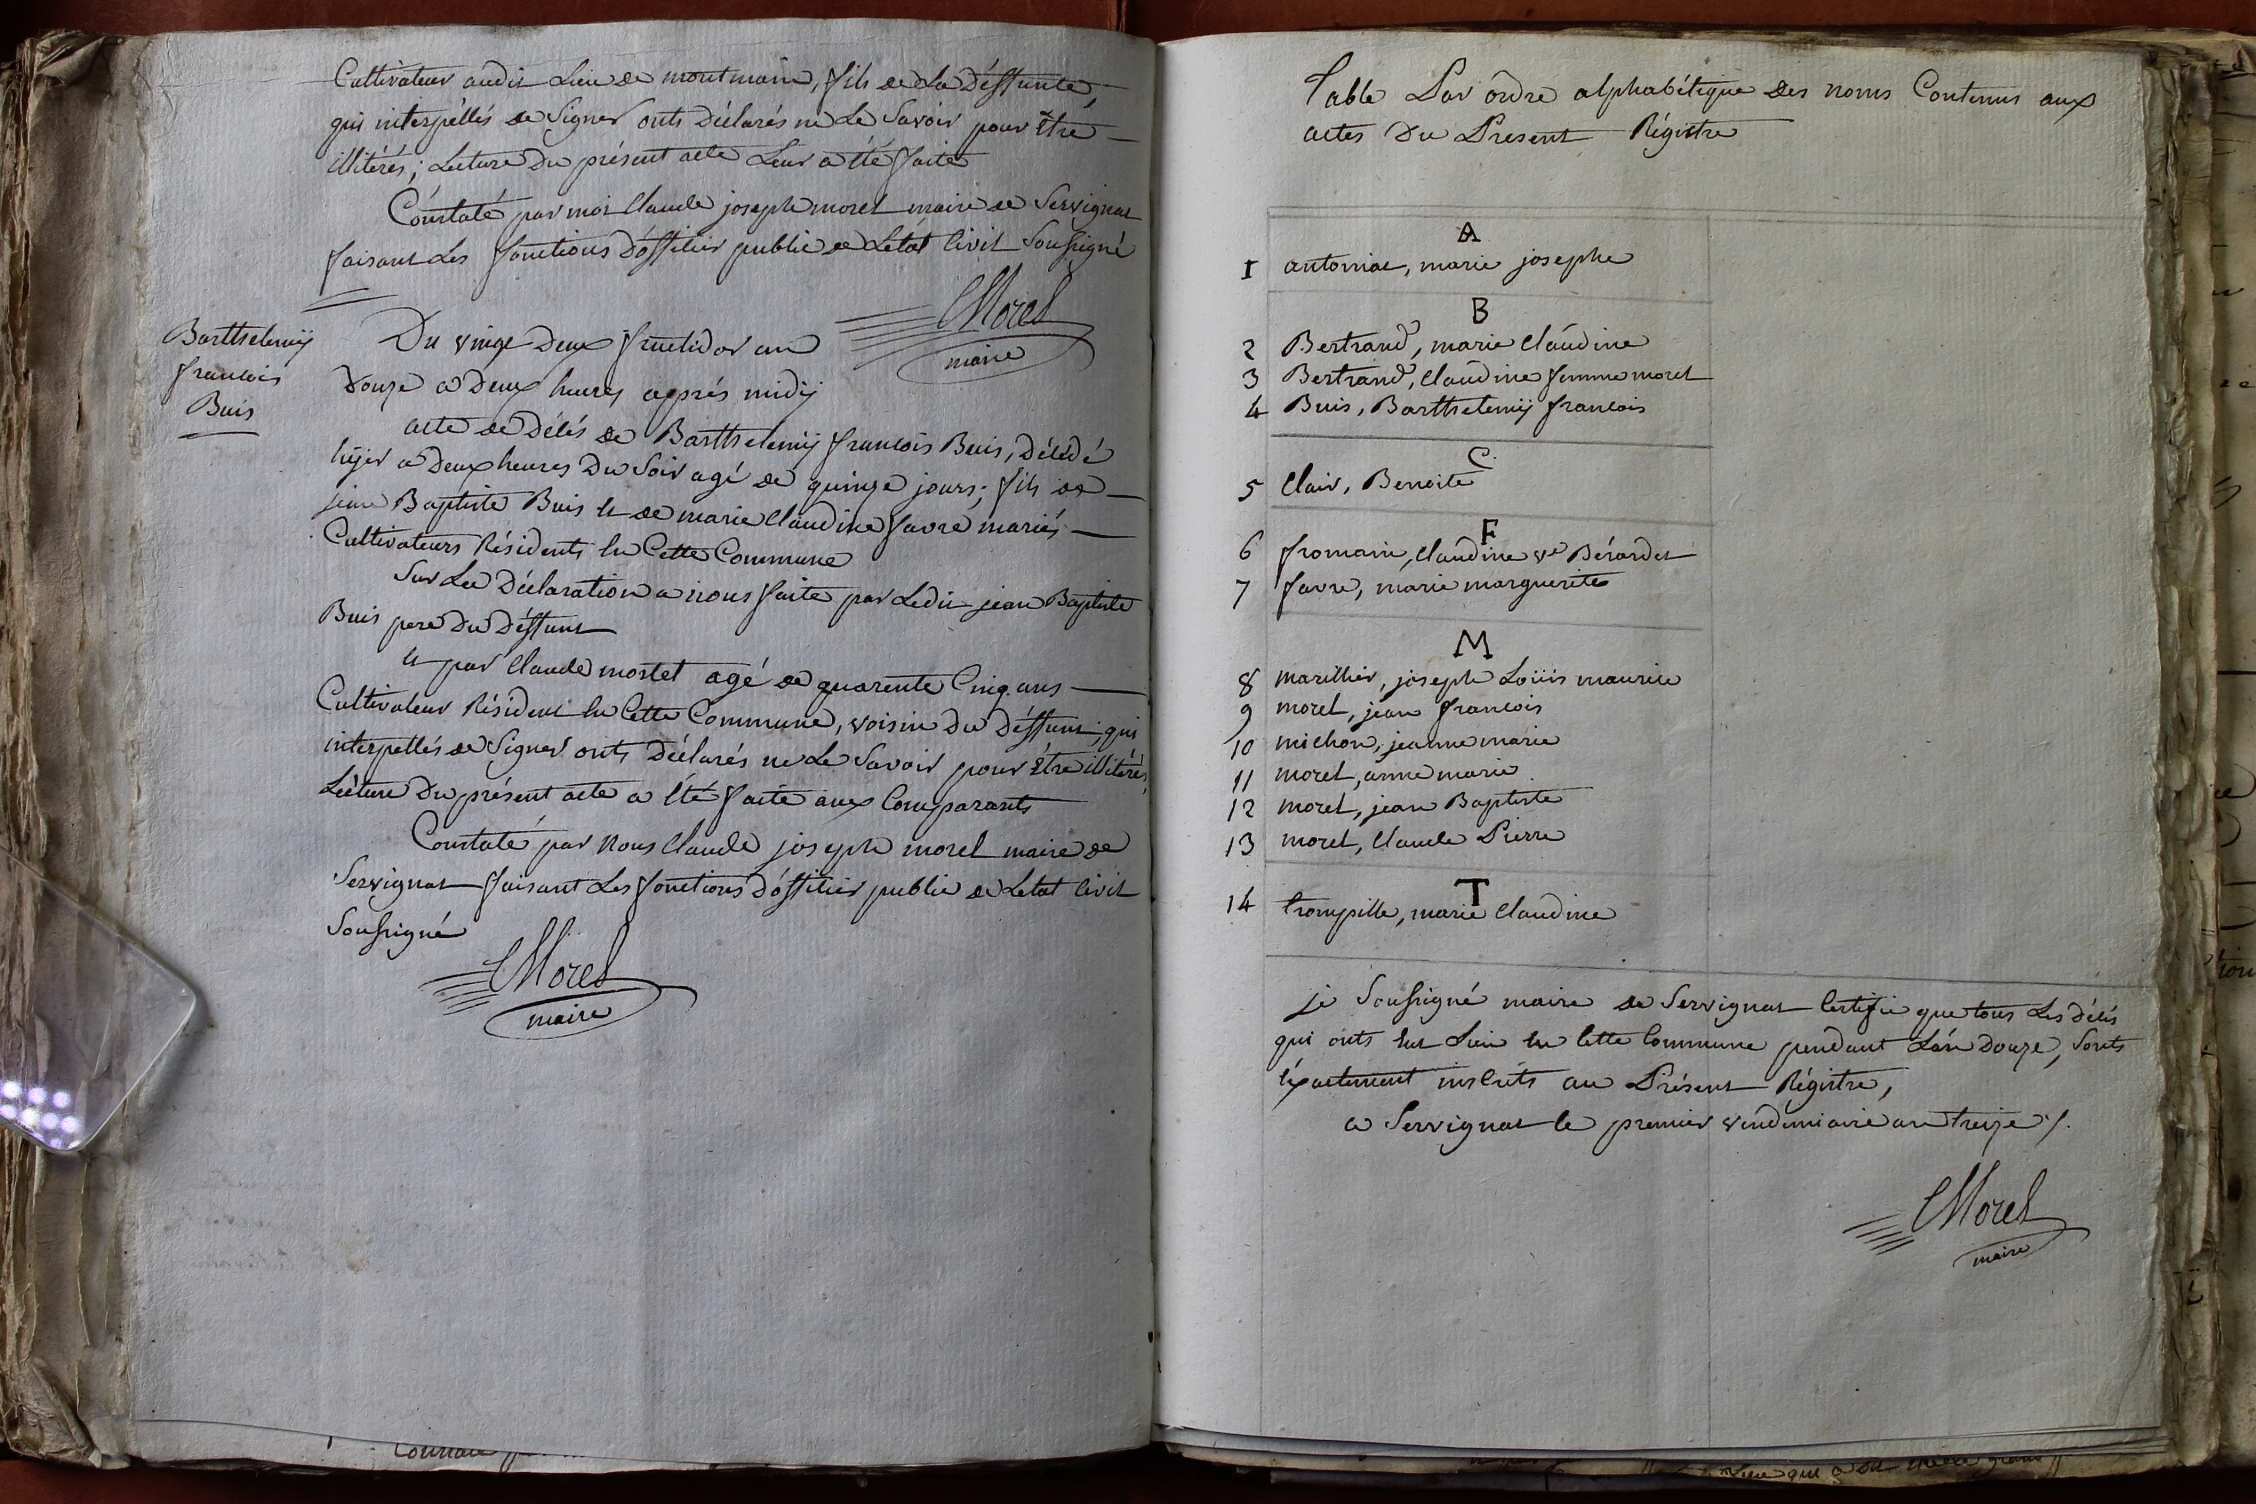 Cultivateur audit Lieu de montmain, fils de La Déffunte,
qui interpéllés de Signer onts Déclarés ne Le Savoir pour être
illitérés; Lecture Du présent acte Leur a été faite
Constaté par moi Claude joseph morel maire de Servignat
faisant Les fonctions D'offitier public de L'état Civil Soussigné
Morel
maire
Barthelemÿ
francois
Buis
Du vingt Deux fructidor an
Douze a Deux heures apprés midÿ
acte de Délés de Barthelemÿ francois Buis, Délédé
hÿer a Deux heures Du Soir agé de quinze jours; fils de
jean Baptiste Buis et de marie Claudine favre mariés
Cultivateurs Résidents En Cette Commune
Sur La Déclaration a nous faite par Ledit jean Baptiste
Buis pere Du Déffunt
et par Claude mostel agé de quarente Cinq ans
Cultivateur Résident En Cette Commune, voisin Du Déffunt; qui
interpellés de Signer onts Déclarés ne Le Savoir pour être illitérés,
Lécture Du présent acte a été faite aux Comparants
Constaté par nous Claude joseph morel maire de
Servignat faisant Les fonctions D'offitier public de L'etat Civil
Soussigné
Morel
maire
Table Par ordre alphabétique Des noms Contenus aux
actes Du Present Régistre
A
1 antoniat, marie josephe
B
2 Bertrand, marie Claudine
3 Bertrand, Claudine femme morel
4 Buis, Barthelemÿ francois
C
5 Clair, Benoite
F
6 fromain, Claudine ve Bérardet
7 favre, marie marguerite
M
8 marillier, joseph Loüis maurice
9 morel, jean francois
10 michon, jeanne marie
11 morel, anne marie
12 morel, jean Baptiste
13 morel, Claude Pierre
T
14 trompille, marie Claudine
je Soussigné maire de Servignat Certifie que tous Les Délés
qui onts Eut Lieu En Cette Commune pendant L'an Douze, Sonts
Exactement inscrits au Présent Régistre,
a Servignat le premier vendémiaire an treize ./.
Morel
maire